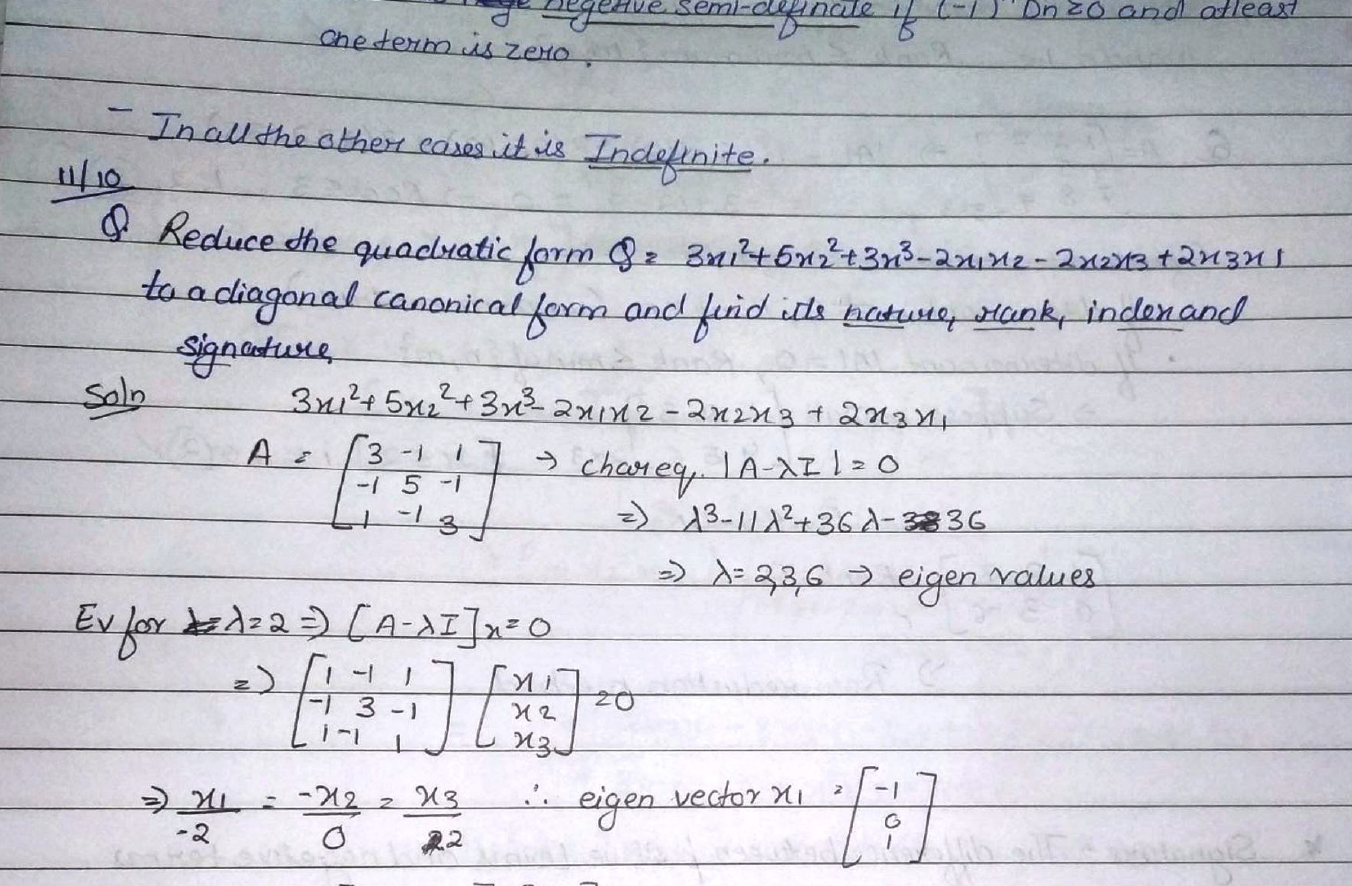 negetive semi-definate if (-1)ⁿ Dn ≥0 and atleast
one term is zero.
- In all the other cases it is Indefinite.
11/10
Q Reduce the quadratic form Q = 3x1²+5x2²+3x³-2x1x2-2x2x3+2x3x1
to a diagonal canonical form and find its nature, rank, index and
signature
Soln 3x1²+5x2²+3x³-2x1x2-2x2x3+2x3x1
A = [3 -1 1 → char eq. |A-λI|=0
-1 5 -1
1 -1 3] => λ3-11λ²+36λ-36
=> λ=2,3,6 → eigen values
Ev for λ=2 => [A-λI]x=0
=> [1 -1 1 [x1
-1 3 -1 x2 =0
1 -1 1] x3]
=> x1/-2 = -x2/0 = x3/2 ∴ eigen vector x1 = [-1
0
1]